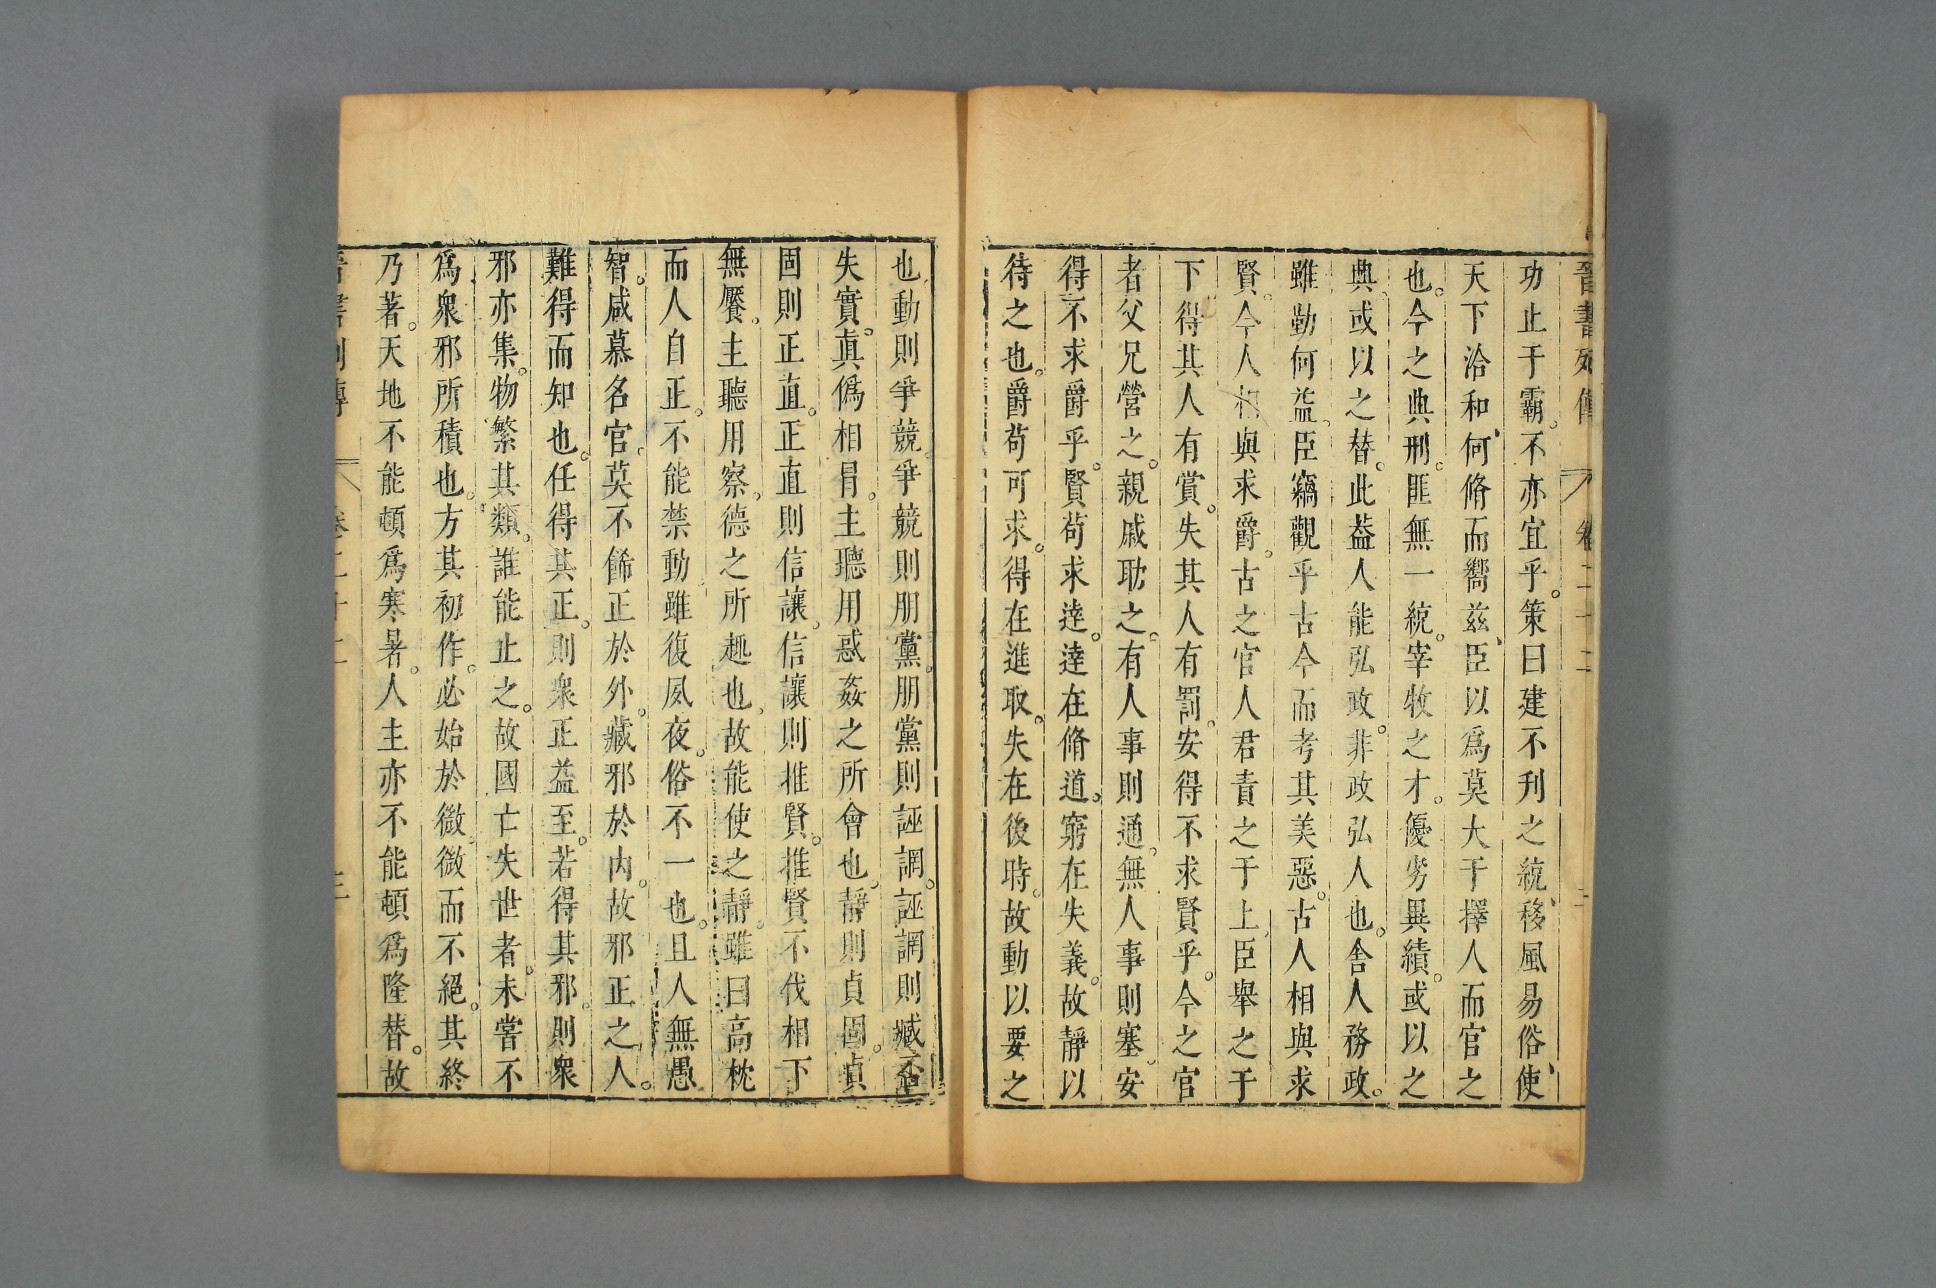 晉書列傳 卷二十二 二
功止于霸。不亦宜乎。策曰建不刋之統、移風易俗、使
天下洽和、何脩而嚮茲、臣以爲莫大于擇人而官之
也。今之典刑。匪無一統。宰牧之才。優劣異績。或以之
興、或以之替。此蓋人能弘政。非政弘人也。舍人務政。
雖勤何益、臣竊觀乎古今而考其美惡。古人相與求
賢。今人相與求爵。古之官人君責之于上、臣舉之于
下得其人有賞。失其人有罰。安得不求賢乎。今之官
者父兄營之。親戚助之。有人事則通。無人事則塞。安
得不求爵乎。賢苟求達。達在脩道。窮在失義。故靜以
待之也。爵苟可求。得在進取。失在後時。故動以要之
也動則爭競。爭競則朋黨。朋黨則誣誷。誣誷則臧否
失實。眞僞相冐。主聽用惑姦之所會也。靜則貞固。貞
固則正直。正直則信讓。信讓則推賢。推賢不伐相下
無饜。主聽用察。德之所趣也、故能使之靜。雖曰高枕
而人自正。不能禁動。雖復夙夜。俗不一也。且人無愚
智。咸慕名官。莫不餙正於外。藏邪於內。故邪正之人。
難得而知也。任得其正。則衆正益至。若得其邪。則衆
邪亦集。物繁其類。誰能止之。故國亡失世者。未嘗不
爲衆邪所積也。方其初作。必始於微。微而不絕。其終
乃著。天地不能頓爲寒暑。人主亦不能頓爲隆替。故
晉書列傳 卷二十二 三